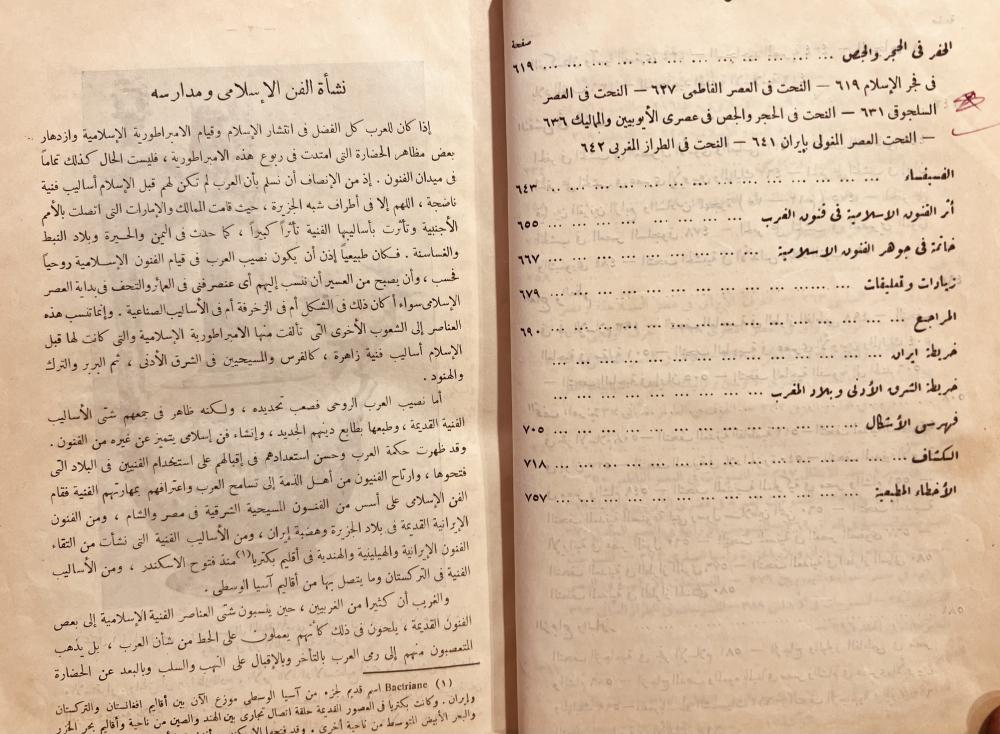 صفحة
الحفر فى الحجر والجص ... ... ... ... ... ... ... ... ... ... ٦١٩
فى فجر الإسلام ٦١٩ — النحت فى العصر الفاطمى ٦٢٧ — النحت فى العصر
السلجوقى ٦٣١ — النحت فى الحجر والجص فى عصرى الأيوبيين والمماليك ٦٣٦
— النحت العصر المغولى بإيران ٦٤١ — النحت فى الطراز المغربى ٦٤٢
الفسيفساء ... ... ... ... ... ... ... ... ... ... ... ... ٦٤٣
أثر الفنون الاسلامية فى فنون الغرب ... ... ... ... ... ... ... ٦٥٥
خاتمة فى جوهر الفنون الاسلامية ... ... ... ... ... ... ... ... ٦٦٧
زيادات وتعليقات ... ... ... ... ... ... ... ... ... ... ... ٦٧٩
المراجع ... ... ... ... ... ... ... ... ... ... ... ... ... ٦٩٠
خريطة ايران ... ... ... ... ... ... ... ... ... ... ... ...
خريطة الشرق الأدنى وبلاد المغرب ... ... ... ... ... ... ... ...
فهرس الأشكال ... ... ... ... ... ... ... ... ... ... ... ٧٠٥
الكشاف ... ... ... ... ... ... ... ... ... ... ... ... ... ٧١٨
الأخطاء المطبعية ... ... ... ... ... ... ... ... ... ... ... ٧٥٧
نشأة الفن الإسلامى ومدارسه
إذا كان للعرب كل الفضل فى انتشار الإسلام وقيام الامبراطورية الإسلامية وازدهار
بعض مظاهر الحضارة التى امتدت فى ربوع هذه الامبراطورية ، فليست الحال كذلك تماماً
فى ميدان الفنون . إذ من الإنصاف أن نسلم بأن العرب لم تكن لهم قبل الإسلام أساليب فنية
ناضجة ، اللهم إلا فى أطراف شبه الجزيرة ، حيث قامت الممالك والإمارات التى اتصلت بالأمم
الأجنبية وتأثرت بأساليبها الفنية تأثراً كبيراً ، كما حدث فى اليمن والحيرة وبلاد النبط
والغساسنة . فكان طبيعياً إذن أن يكون نصيب العرب فى قيام الفنون الإسلامية روحياً
فحسب ، وأن يصبح من العسير أن ننسب إليهم أى عنصر فنى فى العمائر والتحف فى بداية العصر
الإسلامى سواء أكان ذلك فى الشكل أم فى الزخرفة أم فى الأساليب الصناعية . وإنما تنسب هذه
العناصر إلى الشعوب الأخرى التى تألفت منها الامبراطورية الإسلامية والتى كانت لها قبل
الإسلام أساليب فنية زاهرة ، كالفرس والمسيحيين فى الشرق الأدنى ، ثم البربر والترك
والهنود .
أما نصيب العرب الروحى فصعب تحديده ، ولكنه ظاهر فى جمعهم شتى الأساليب
الفنية القديمة ، وطبعها بطابع دينهم الجديد ، وإنشاء فن إسلامى يتميز عن غيره من الفنون .
وقد ظهرت حكمة العرب وحسن استعدادهم فى إقبالهم على استخدام الفنيين فى البلاد التى
فتحوها ، وارتاح الفنيون من أهل الذمة إلى تسامح العرب واعترافهم بمهارتهم الفنية فقام
الفن الإسلامى على أسس من الفنون المسيحية الشرقية فى مصر والشام ، ومن الفنون
الإيرانية القديمة فى بلاد الجزيرة وهضبة إيران ، ومن الأساليب الفنية التى نشأت من التقاء
الفنون الإيرانية والهيلينية والهندية فى أقليم بكتريا(١) منذ فتوح الاسكندر ، ومن الأساليب
الفنية فى التركستان وما يتصل بها من أقاليم آسيا الوسطى .
والغريب أن كثيرا من الغربيين ، حين ينسبون شتى العناصر الفنية الإسلامية إلى بعض
الفنون القديمة ، يلحون فى ذلك كأنهم يعملون على الحط من شأن العرب ، بل يذهب
المتعصبون منهم إلى رمى العرب بالتأخر وبالإقبال على النهب والسلب وبالبعد عن الحضارة
(١) Bactriane اسم قديم لجزء من آسيا الوسطى موزع الآن بين أقاليم افغانستان والتركستان
وإيران . وكانت بكتريا فى العصور القديمة حلقة اتصال تجارى بين الهند والصين من ناحية وأقاليم بحر الخزر
والبحر الأبيض المتوسط من ناحية أخرى .